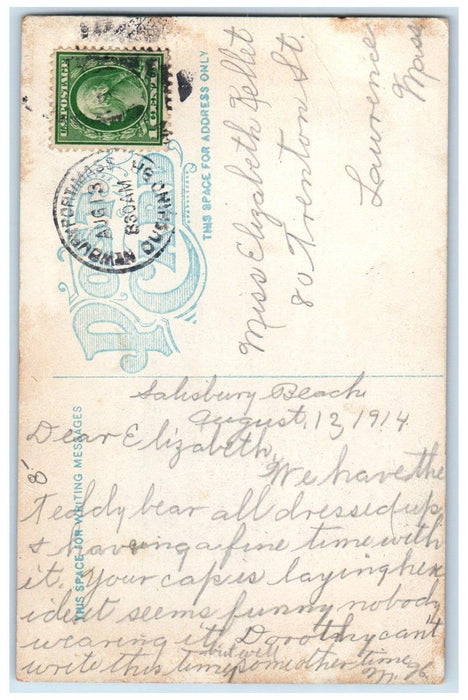 U.S. POSTAGE
1 CENT 1
NEWBURYPORT, MASS.
AUG 13
830AM
POST CARD
THIS SPACE FOR ADDRESS ONLY
Miss Elizabeth Kellet
80 Trenton St.
Lawrence
Mass
THIS SPACE FOR WRITING MESSAGES
Salisbury Beach
August, 13, 1914
Dear Elizabeth,
We have the
Teddy bear all dressed up
& having a fine time with
it. Your cap is laying here
idle it seems funny nobody
wearing it. Dorothy can't
write this time but will some other time
M. K.
8'